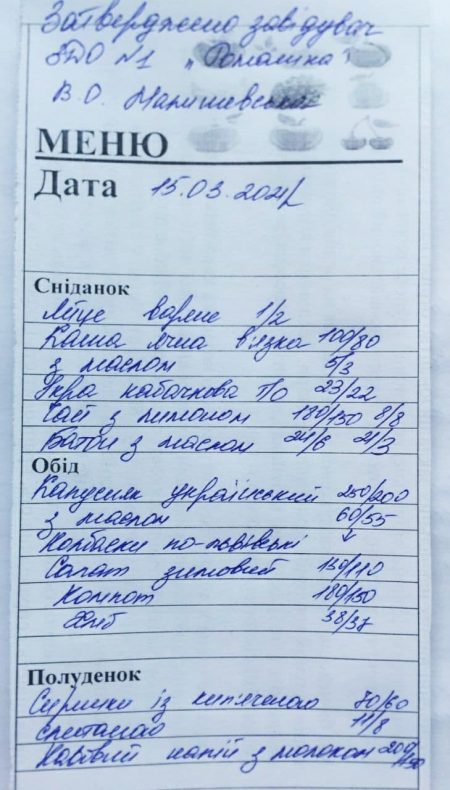 Затверджено завідувач
ЗДО №1 "Ромашка"
В.О. Малишевська
МЕНЮ
Дата 15.03.2024
Сніданок
Яйце варене 1/2
Каша ячна в'язка 100/80
з маслом 5/3
Ікра кабачкова п/о 23/22
Чай з лимоном 180/150 8/8
Батон з маслом 24/6 21/3
Обід
Капусняк український 250/200
з маслом
Ковбаски по-львівські 60/55
Салат зимовий 130/110
Компот 180/150
Хліб 38/37
Полуденок
Сирники із кип'яченою 80/60
сметаною 11/8
Кавовий напій з молоком 200/150